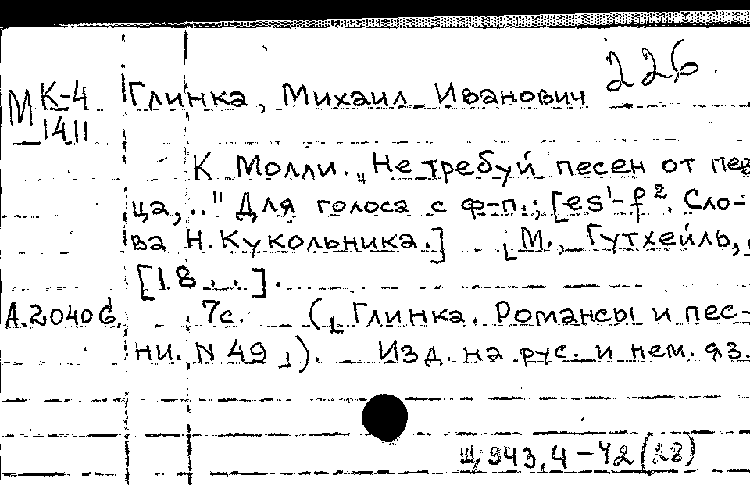 226.
М К-4 Глинка, Михаил Иванович
1411
К Молли. „Не требуй песен от пев
ца,.." Для голоса с ф-п.; [es¹-f². Сло-
ва Н. Кукольника.] [М., Гутхейль,
[18...].
А.20406. 7с. (Глинка. Романсы и пес-
ни. N 49). Изд. на рус. и нем. яз.
Щ943.4-42(28)